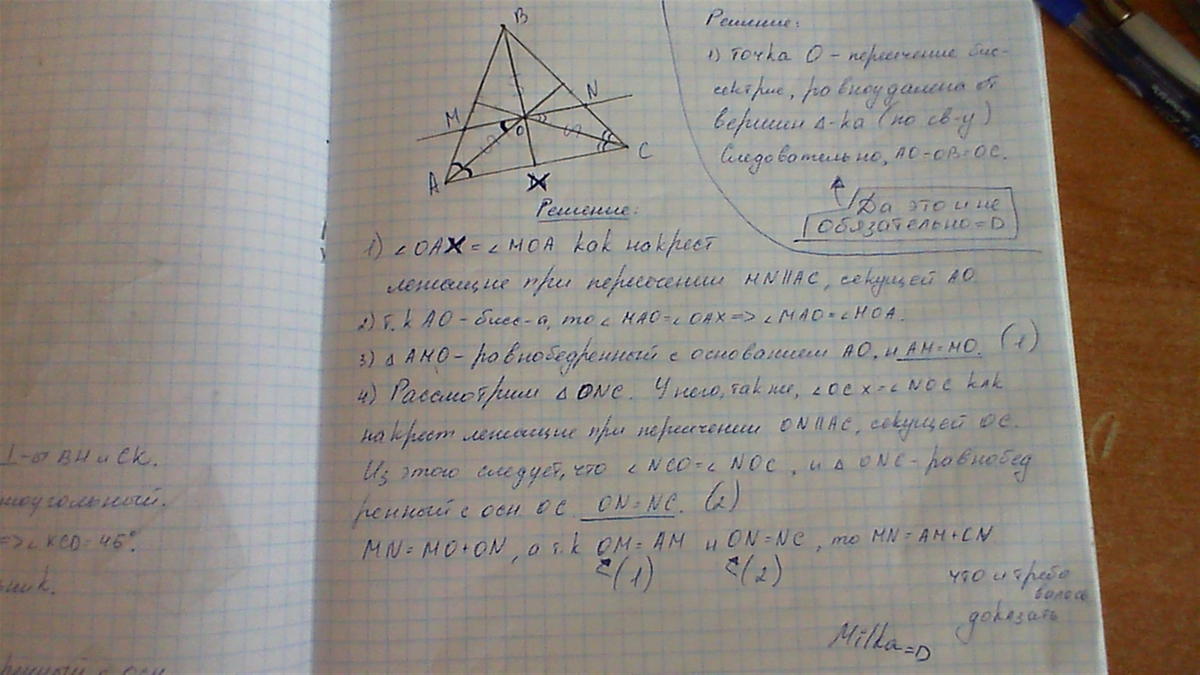 B
M
N
O
A
C
X
Решение:
1) точка О – пересечение бис-
сектрис, равноудалена от
вершин Δ-ка (по св-у)
Следовательно, AO=OB=OC.
Да это и не
обязательно =D
Решение:
1) ∠OAX = ∠MOA как накрест
лежащие при пересечении MN||AC, секущей AO
2) т.к AO – бисс-а, то ∠MAO=∠OAX => ∠MAO=∠MOA.
3) Δ AMO – равнобедренный с основанием AO, и AM=MO. (1)
4) Рассмотрим Δ ONC. У него, также, ∠OCX = ∠NOC как
накрест лежащие при пересечении ON||AC, секущей OC.
Из этого следует, что ∠NCO=∠NOC, и Δ ONC – равнобед
ренный с осн OC. ON=NC. (2)
MN=MO+ON, а т.к OM=AM и ON=NC, то MN=AM+CN
(1) (2)
что и требо
валось
доказать
Milka =D
⊥-ы BH и CK.
моугольный.
=> ∠KCD=45°.
ник.
ренный с осн